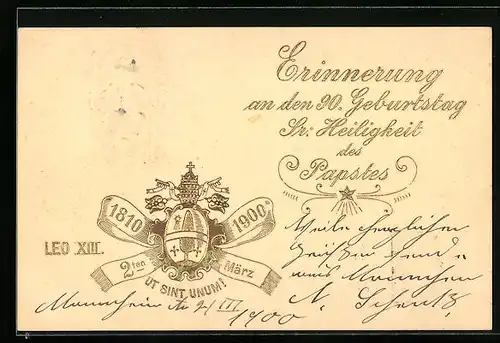 Erinnerung
an den 90. Geburtstag
Sr: Heiligkeit
des
Papstes
1810
1900
LEO XIII.
2ten
März
UT SINT UNUM!
herzlichen
aus
N. Schenk
Mannheim 2/III
1900